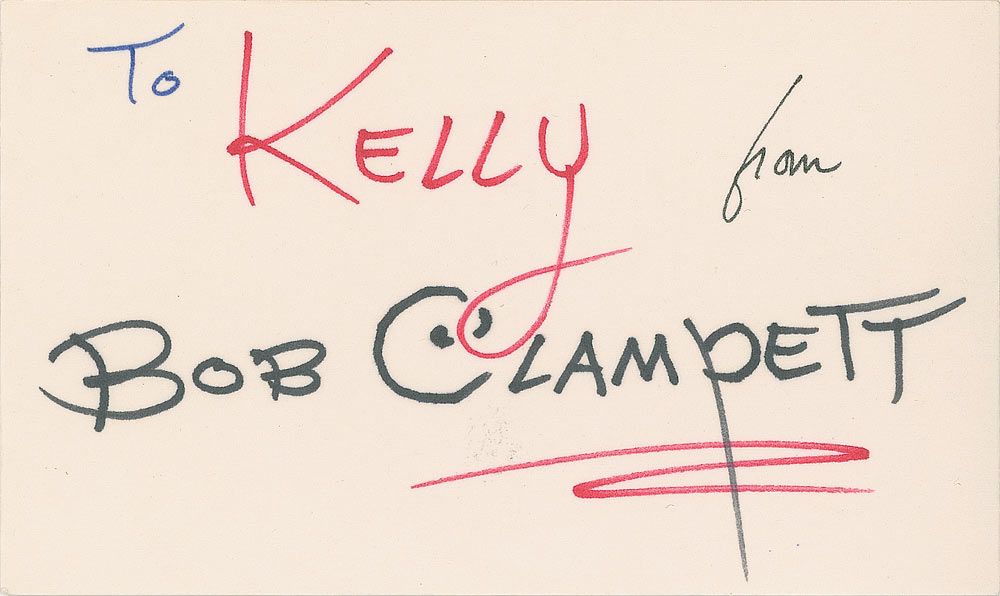 To KELLY from
BOB CLAMPETT